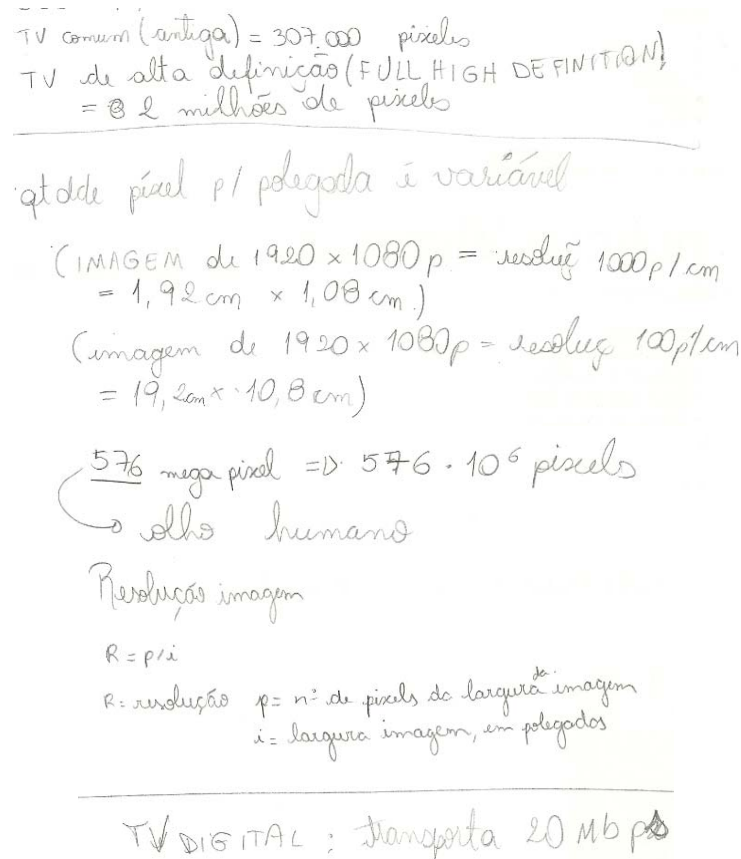 TV comum (antiga) = 307.000 pixels
TV de alta definição (FULL HIGH DEFINITION)
= 2 milhões de pixels
qtdde píxel p/ polegada é variável
(IMAGEM de 1920 x 1080p = resoluç 1000p/cm
= 1,92 cm x 1,08 cm.)
(imagem de 1920 x 1080p = resoluç 100p/cm
= 19,2cm x 10,8 cm)
576 mega pixel => 576 . 10⁶ pixels
olho humano
Resolução imagem
R = p/i
R = resolução p = nº de pixels da largura da imagem
i = largura imagem, em polegadas
TV DIGITAL : transporta 20 Mbps